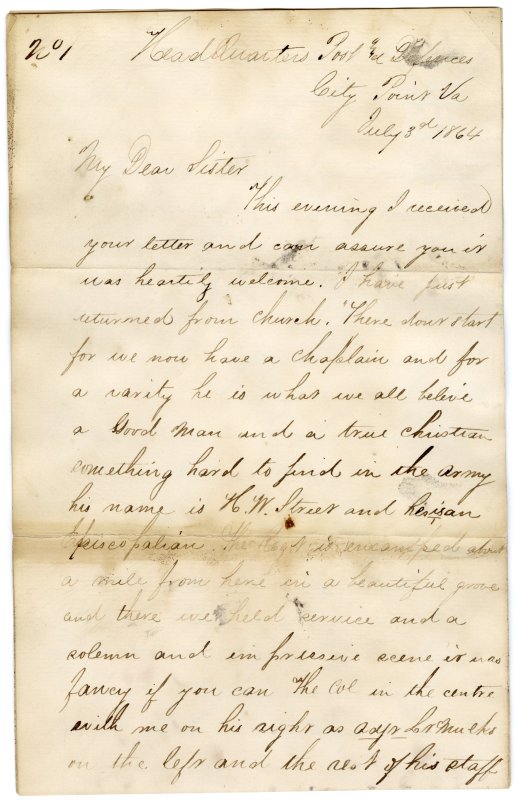 No 1
HeadQuarters Post & Defences
City Point Va
July 3rd 1864
My Dear Sister
This evening I received
your letter and can assure you it
was heartily welcome. I have just
returned from church. There dont start
for we now have a chaplain and for
a rarity he is what we all belive
a Good man and a true christian
something hard to find in the army
his name is H. W. Street and he is an
Episcopalian. The Regt is encamped about
a mile from here in a beautiful grove
and there we held service and a
solemn and impressive scene it was
fancy if you can The Col in the centre
with me on his right as adjt Lt Mulks
on the left and the rest of his staff